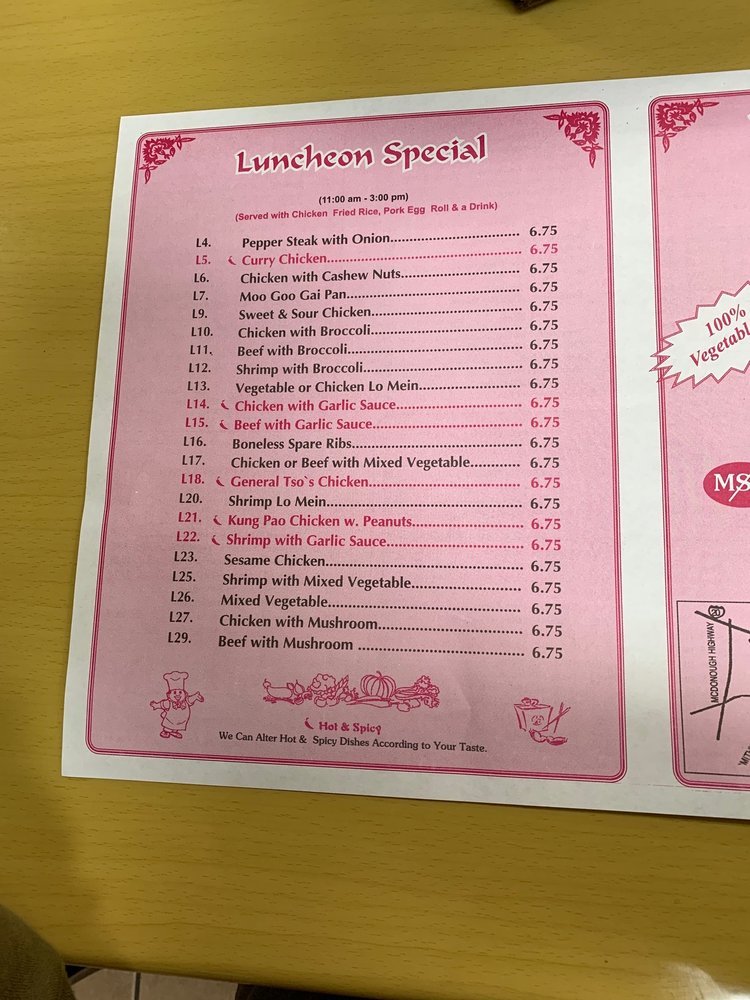 Luncheon Special
(11:00 am - 3:00 pm)
(Served with Chicken Fried Rice, Pork Egg Roll & a Drink)
L4. Pepper Steak with Onion................................ 6.75
L5. Curry Chicken................................................ 6.75
L6. Chicken with Cashew Nuts............................. 6.75
L7. Moo Goo Gai Pan.......................................... 6.75
L9. Sweet & Sour Chicken.................................... 6.75
L10. Chicken with Broccoli.................................... 6.75
L11. Beef with Broccoli.......................................... 6.75
L12. Shrimp with Broccoli...................................... 6.75
L13. Vegetable or Chicken Lo Mein......................... 6.75
L14. Chicken with Garlic Sauce............................... 6.75
L15. Beef with Garlic Sauce.................................... 6.75
L16. Boneless Spare Ribs......................................... 6.75
L17. Chicken or Beef with Mixed Vegetable............ 6.75
L18. General Tso`s Chicken..................................... 6.75
L20. Shrimp Lo Mein............................................... 6.75
L21. Kung Pao Chicken w. Peanuts.......................... 6.75
L22. Shrimp with Garlic Sauce................................. 6.75
L23. Sesame Chicken............................................... 6.75
L25. Shrimp with Mixed Vegetable.......................... 6.75
L26. Mixed Vegetable.............................................. 6.75
L27. Chicken with Mushroom.................................. 6.75
L29. Beef with Mushroom ....................................... 6.75
Hot & Spicy
We Can Alter Hot & Spicy Dishes According to Your Taste.
100%
Vegetabl
MS
20
MCDONOUGH HIGHWAY